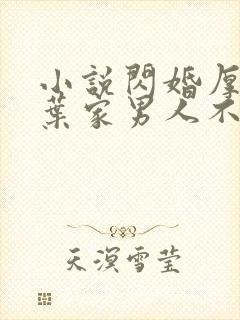 小說閃婚厚
葉家男人不
天溟雪莹